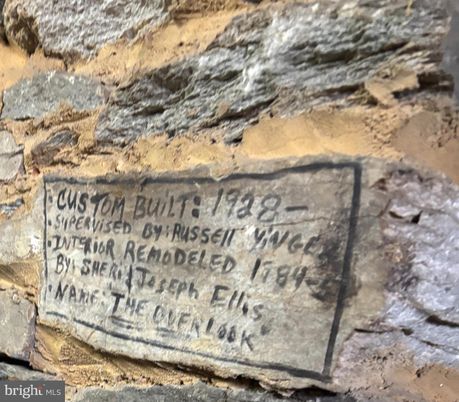 • CUSTOM BUILT: 1928–
• SUPERVISED BY: RUSSELL YINGER
• INTERIOR REMODELED 1984-5
BY: SHERI & JOSEPH ELLIS
• NAME: "THE OVERLOOK"
bright MLS